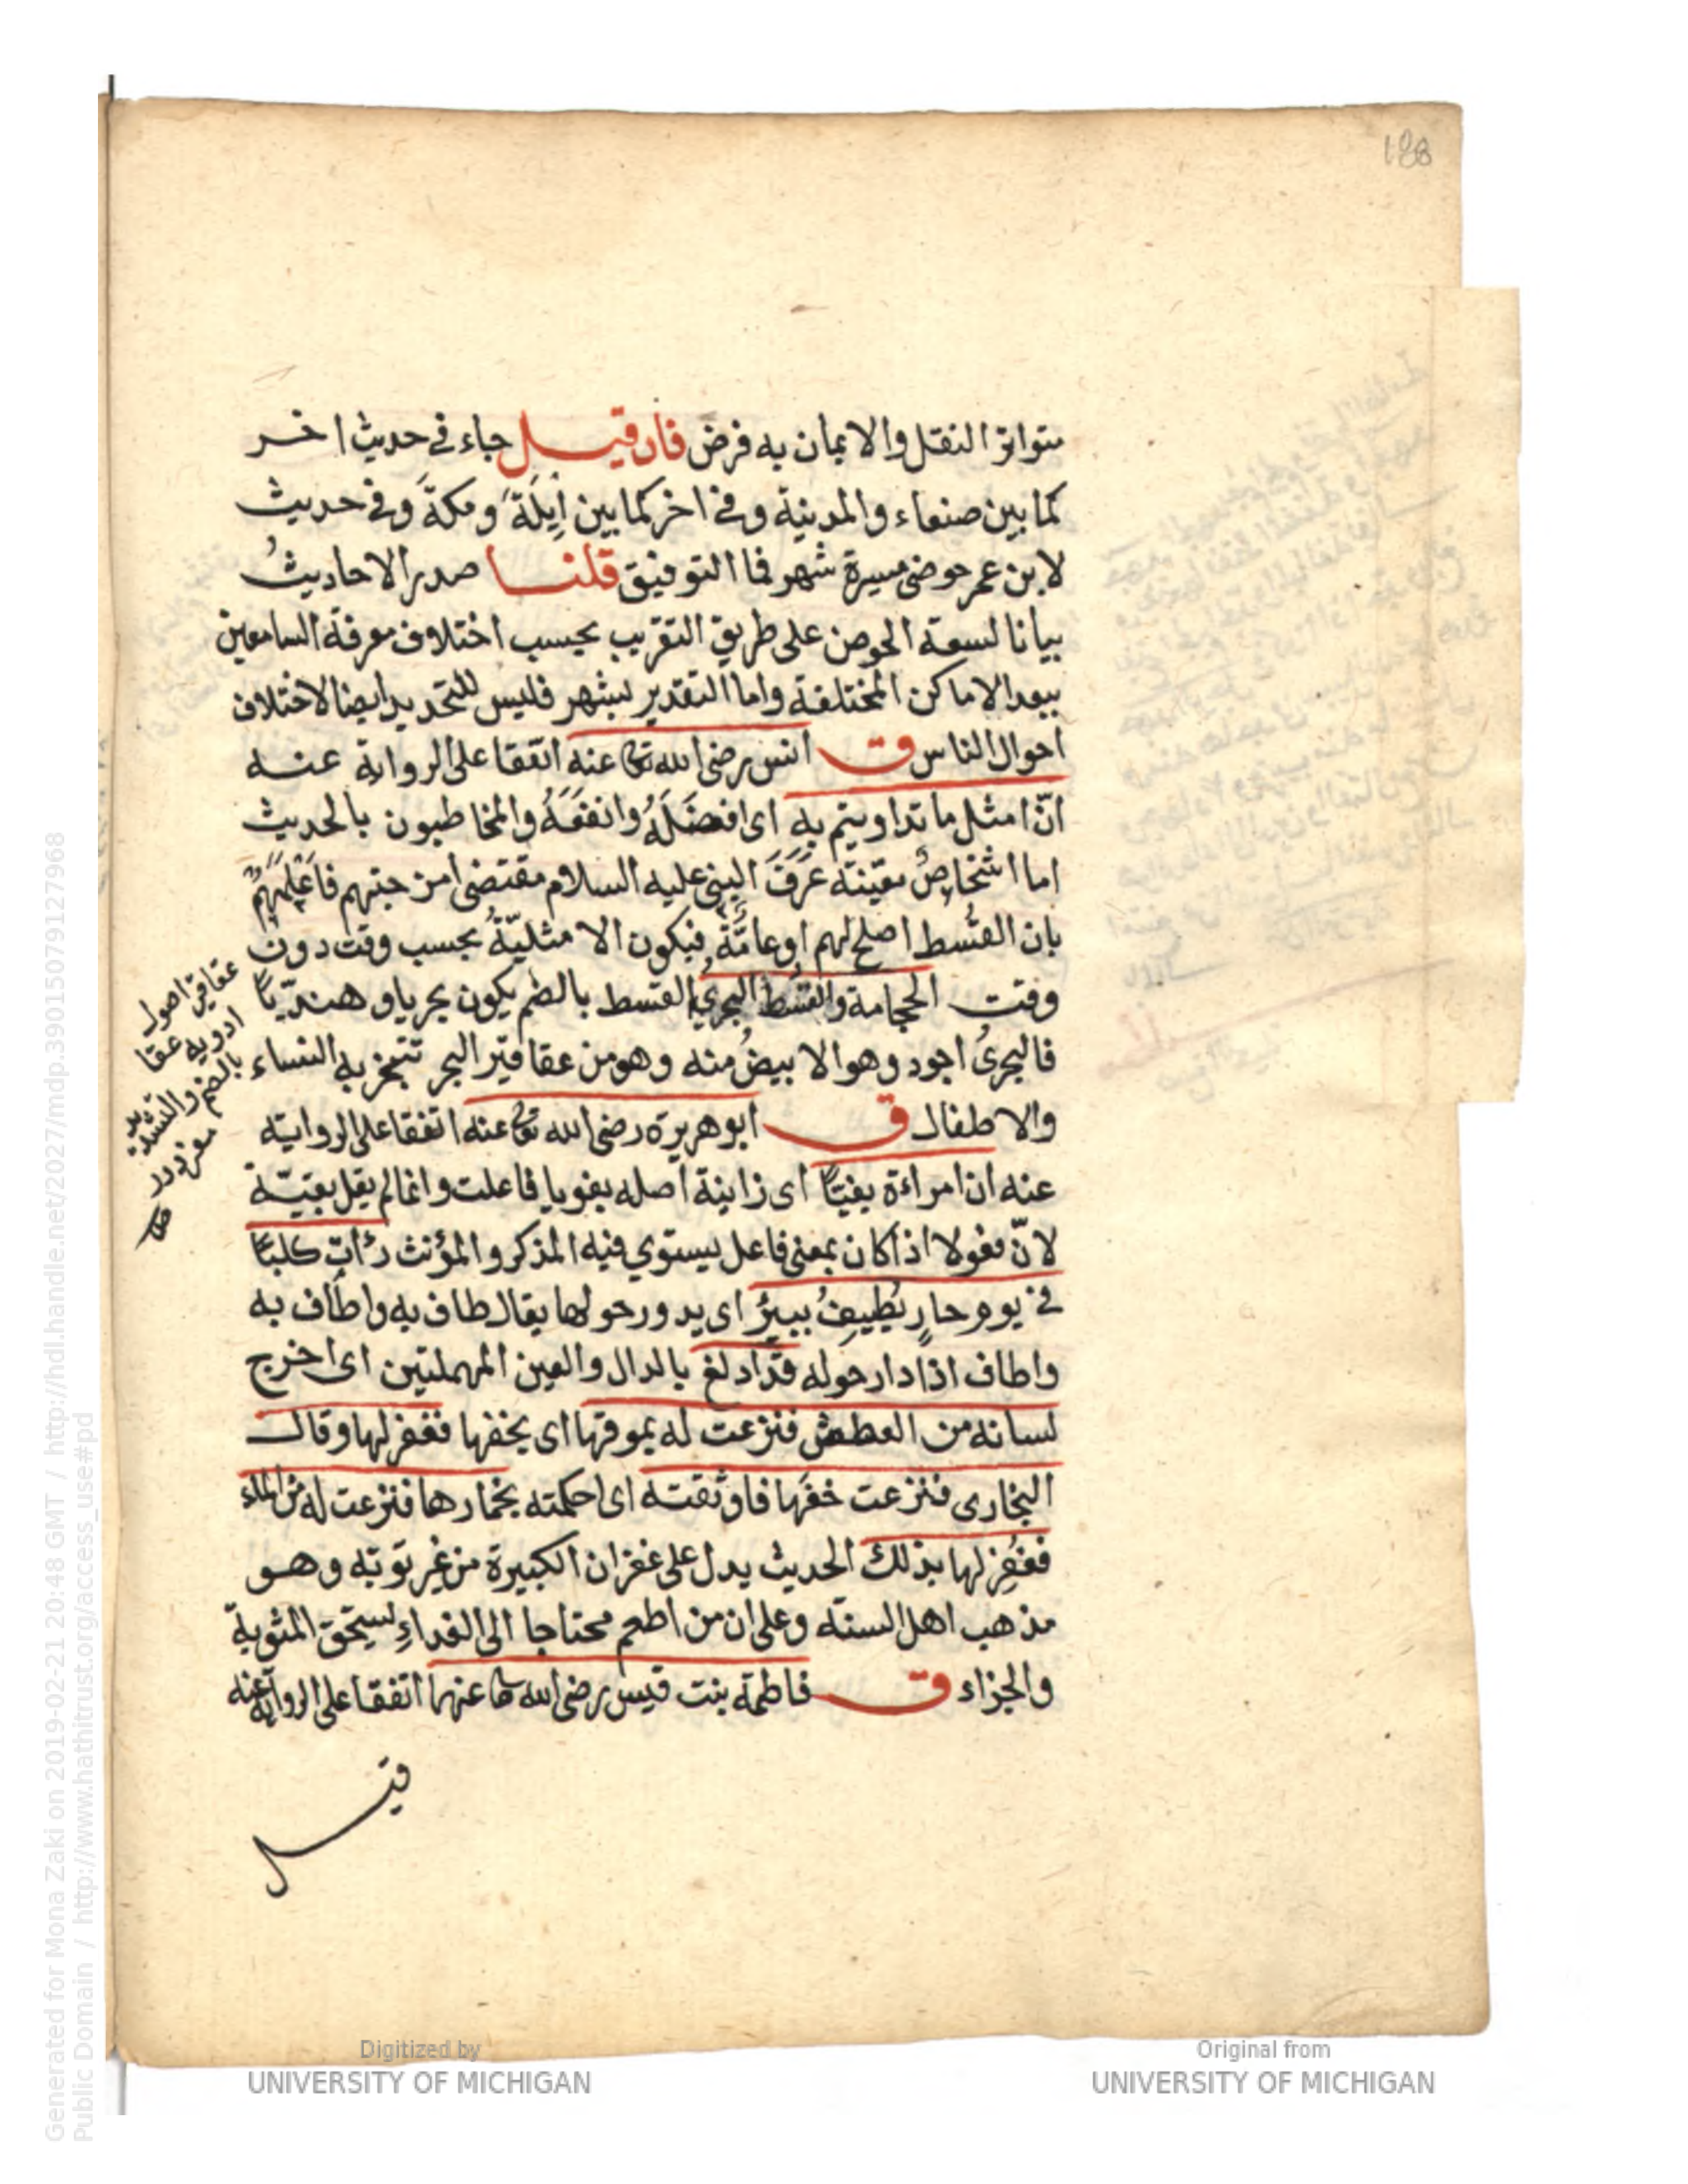 188
متواتر النقل والايمان به فرض فان قيل جاء في حديث اخر
كما بين صنعاء والمدينة وفي اخر كما بين اَيلَةَ ومكةَ وفي حديث
لابن عمر حوضى مسيرة شهر فما التوفيق قلنا صدر الاحاديثُ
بيانا لسعة الحوض على طريق التقريب بحسب اختلاف معرفة السامعين
ببعد الاماكن المختلفة واما التقدير بشهر فليس للتحديد ايضا لاختلاف
احوال الناس ق انس رضى الله تعا عنه اتفقا على الرواية عنه
انّ امثل ما تداويتم به اى افضَلَهُ وانفعَهُ والمخاطبون بالحديث
اما اشخاصٌ معيّنة عَرَفَ النبى عليه السلام مقتضى امزجتهم فاَعْلَمَهُمْ
بان القُسط اصلح لهم او عامَّةٌ فيكون الامثليّةُ بحسب وقت دون
وقت الحجامة والقُسْط البحريُّ القسط بالضم يكون بحريا وهنديًّا
فالبحرىُّ اجود وهو الابيضُ منه وهو من عقاقير البحر تتبخر به النساء
والاطفال ق ابو هريرة رضى الله تعا عنه اتفقا على الرواية
عنه ان امراءة بغيًّا اى زانية اصله بغويا فاعلت وانما لم يقل بغيّة
لانّ فعولا اذا كان بمعنى فاعل يستوي فيه المذكر والمؤنث رأت كلبًا
في يوم حارٍ يُطِيفُ ببئرٍ اى يدور حولها يقال طاف به واطّاف به
واطاف اذا دار حوله قد ادلغ بالدال والعين المهملتين اى اخرج
لسانه من العطش فنزعت له بموقها اى بخفها فغفر لها وقال
البخارى فنزعت خفَّها فاوثقته اى احكمته بخمارها فنزعت له من الماء
فغُفِر لها بذلك الحديث يدل على غفران الكبيرة من غير توبة وهو
مذهب اهل السنة وعلى ان من اطعم محتاجا الى الغداءِ يستحق المثوبة
والجزاء ق فاطمة بنت قيس رضى الله تعا عنها اتفقا على الرواية عنه
قيل
عقاقير اصول
ادويه عقا
بالضم والتشديد
مفرددر
Generated for Mona Zaki on 2019-02-21 20:48 GMT / http://hdl.handle.net/2027/mdp.39015079127968
Public Domain / http://www.hathitrust.org/access_use#pd
Digitized by
UNIVERSITY OF MICHIGAN
Original from
UNIVERSITY OF MICHIGAN